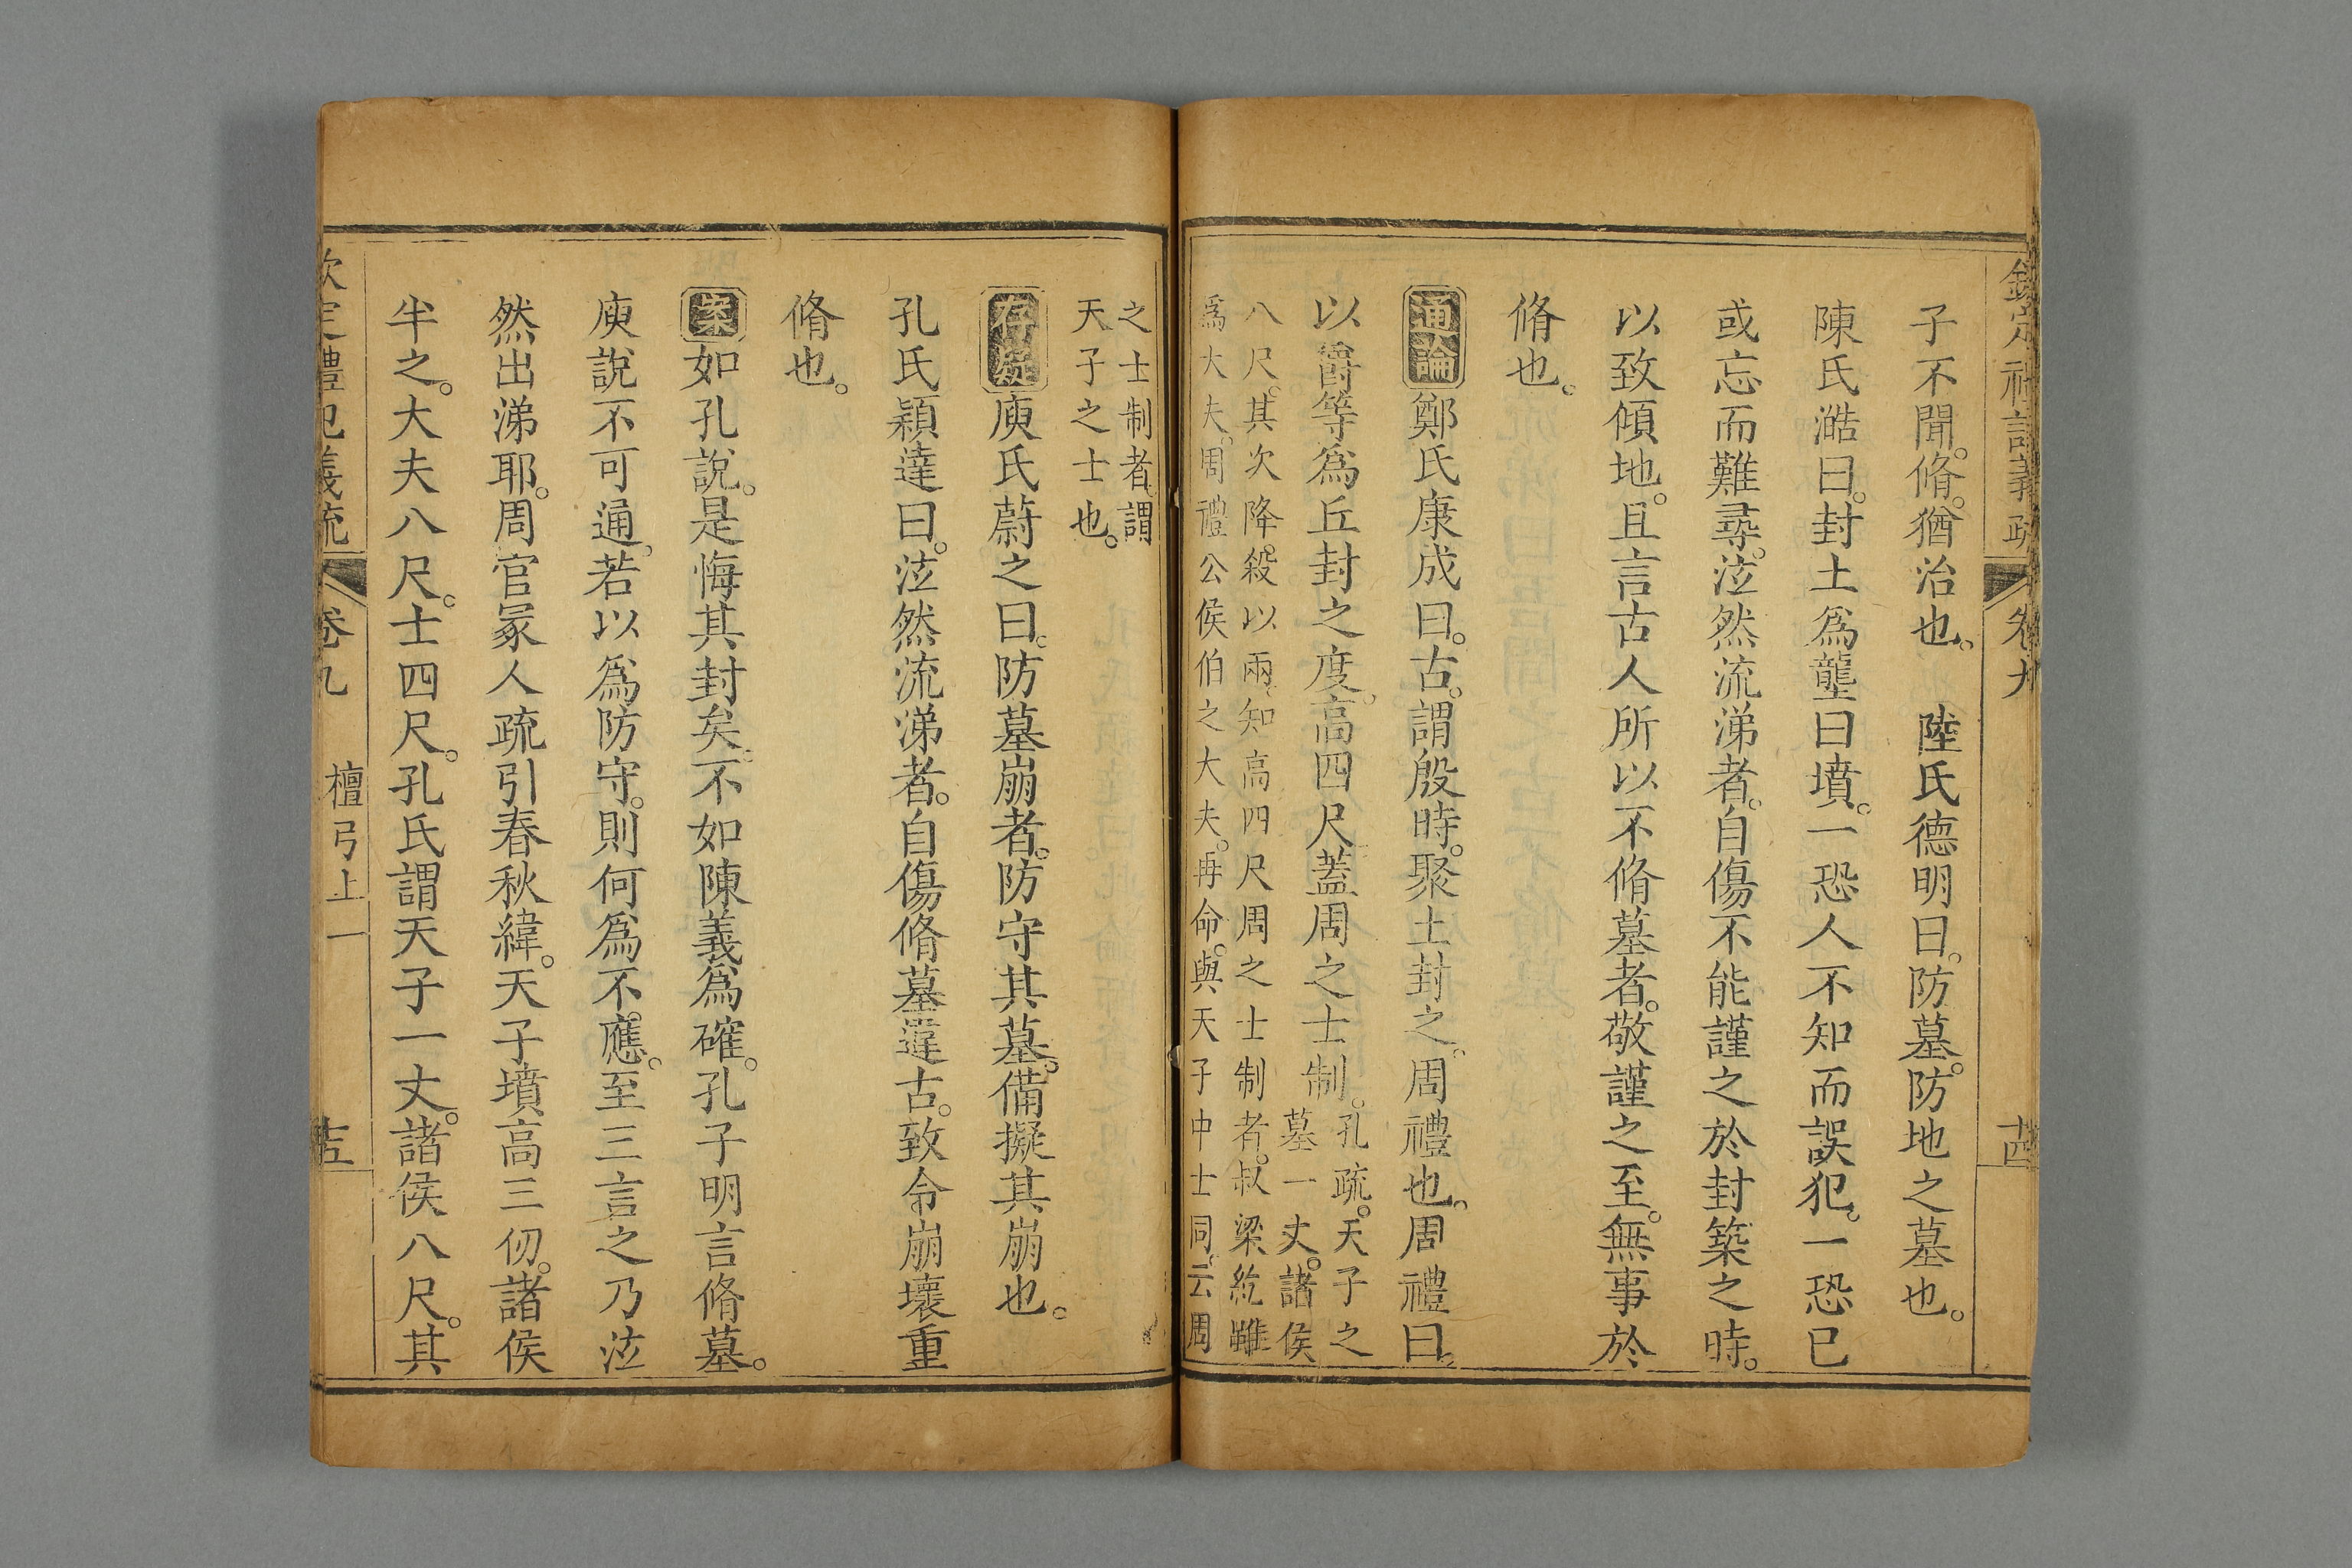 欽定禮記義疏 卷九 十四
子不聞。脩。猶治也。 陸氏德明曰。防墓。防地之墓也。
陳氏澔曰。封土爲壟曰墳。一恐人不知而誤犯。一恐已
或忘而難尋。泫然流涕者。自傷不能謹之於封築之時。
以致傾地。且言古人所以不脩墓者。敬謹之至。無事於
脩也。
通論鄭氏康成曰。古。謂殷時。聚土封之。周禮也。周禮曰。
以爵等爲丘封之度。高四尺蓋周之士制。孔疏。天子之
墓一丈。諸侯
八尺。其次降殺以兩。知高四尺周之士制者。叔梁紇雖
爲大夫。周禮公侯伯之大夫。再命。與天子中士同。云周
之士制者。謂
天子之士也。
存疑庾氏蔚之曰。防墓崩者。防守其墓。備擬其崩也。
孔氏穎達曰。泫然流涕者。自傷脩墓違古。致令崩壞重
脩也。
案如孔說。是悔其封矣。不如陳義爲確。孔子明言脩墓。
庾說不可通。若以爲防守。則何爲不應。至三言之乃泫
然出涕耶。周官冢人疏引春秋緯。天子墳高三仞。諸侯
半之。大夫八尺。士四尺。孔氏謂天子一丈。諸侯八尺。其
欽定禮記義疏 卷九 檀弓上一 十五